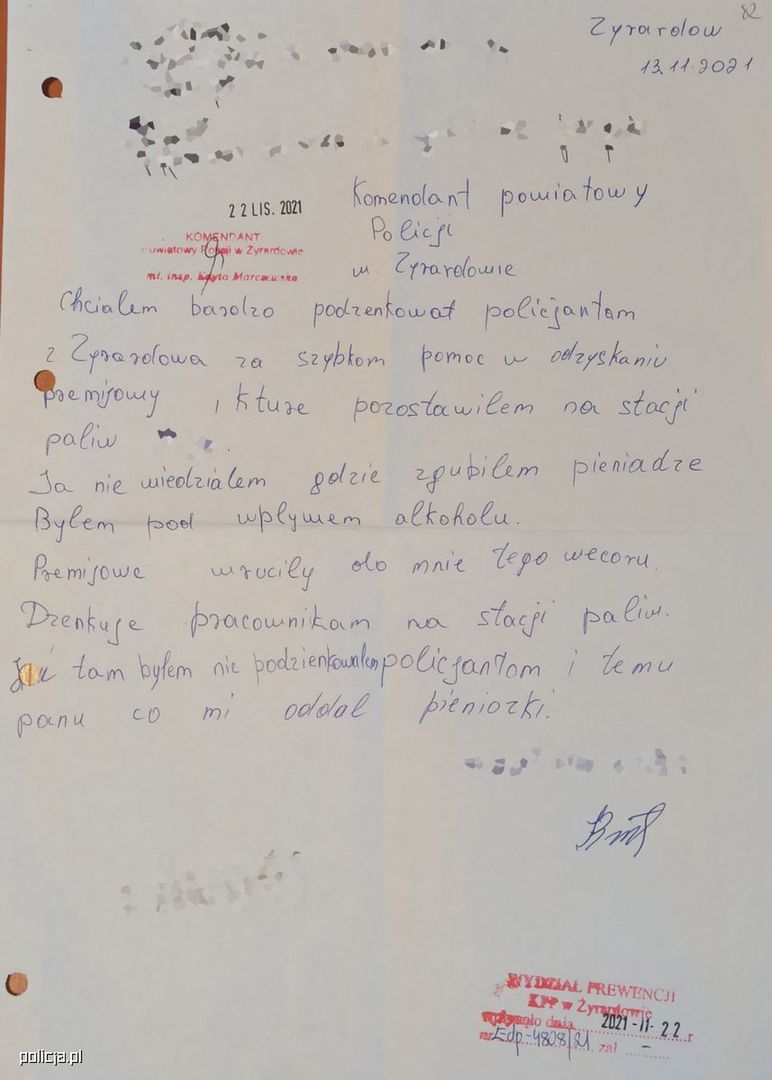 82
Zyrardow
13.11.2021
22 LIS. 2021
Komendant powiatowy
Policji
w. Zyrardowie
KOMENDANT
Powiatowy Policji w Żyrardowie
mł. insp. Edyta Marczewska
Chcialem bardzo podzenkowat policjantom
z Zyrardowa za szybkom pomoc w odzyskaniu
premijowy , kture pozostawilem na stacji
paliw
Ja nie wiedzialem gdzie zgubilem pieniadze
Bylem pod wplywem alkoholu.
Premijowe wrucily do mnie tego wecoru.
Dzenkuje pracownikam na stacji paliw.
tam byłem nie podzienkowalem policjantom i temu
panu co mi oddal pieniozki.
WYDZIAŁ PREWENCJI
KPP w Żyrardowie
wpłynęło dnia 2021 -11- 22 r
nr Edp-4808/21 zał. -
policja.pl